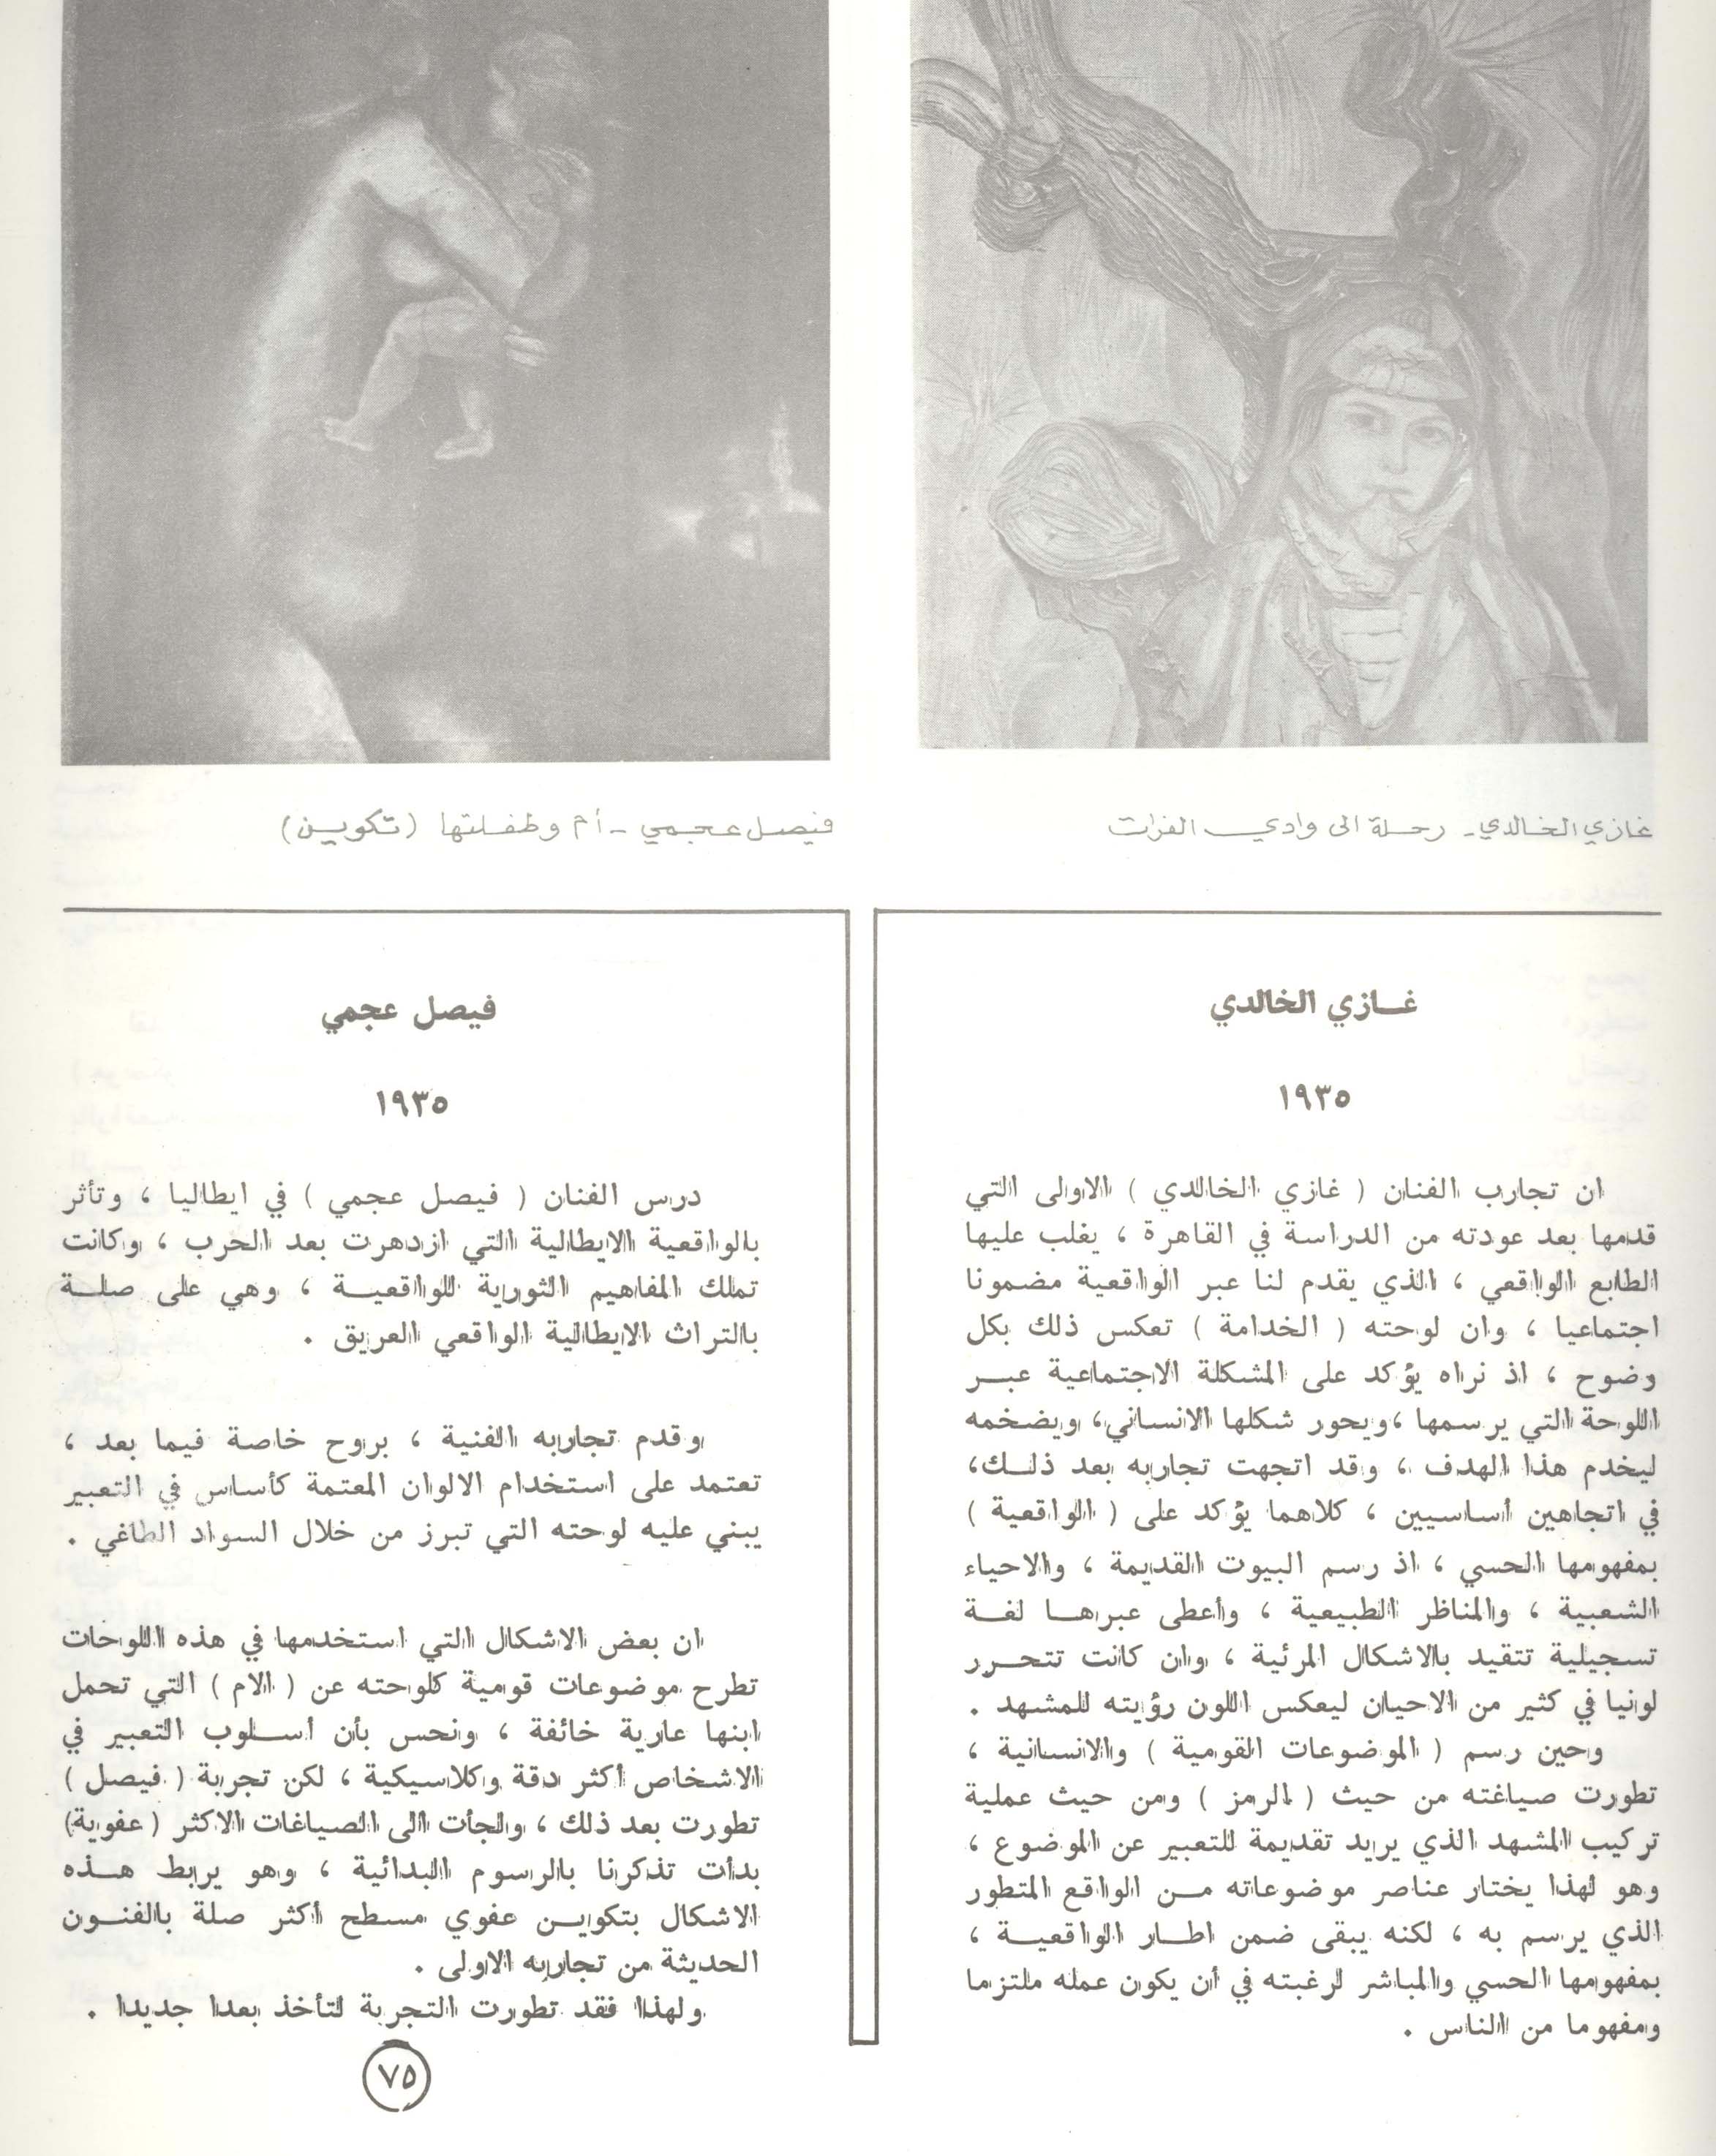 غازي الخالدي - رحلة الى وادي الفرات
فيصل عجمي - أم وطفلتها (تكوين)
غـازي الخالدي
١٩٣٥
ان تجارب الفنان ( غازي الخالدي ) الاولى التي
قدمها بعد عودته من الدراسة في القاهرة ، يغلب عليها
الطابع الواقعي ، الذي يقدم لنا عبر الواقعية مضمونا
اجتماعيا ، وان لوحته ( الخدامة ) تعكس ذلك بكل
وضوح ، اذ نراه يؤكد على المشكلة الاجتماعية عبـر
اللوحة التي يرسمها ،ويحور شكلها الانساني، ويضخمه
ليخدم هذا الهدف ، وقد اتجهت تجاربه بعد ذلـك،
في اتجاهين أساسيين ، كلاهما يؤكد على ( الواقعية )
بمفهومها الحسي ، اذ رسم البيوت القديمة ، والاحياء
الشعبية ، والمناظر الطبيعية ، وأعطى عبرهـا لغـة
تسجيلية تتقيد بالاشكال المرئية ، وان كانت تتحـرر
لونيا في كثير من الاحيان ليعكس اللون رؤيته للمشهد .
وحين رسم ( الموضوعات القومية ) والانسانية ،
تطورت صياغته من حيث ( الرمز ) ومن حيث عملية
تركيب المشهد الذي يريد تقديمة للتعبير عن الموضوع ،
وهو لهذا يختار عناصر موضوعاته مـن الواقع المتطور
الذي يرسم به ، لكنه يبقى ضمن اطـار الواقعيـة ،
بمفهومها الحسي والمباشر لرغبته في أن يكون عمله ملتزما
ومفهوما من الناس .
فيصل عجمي
١٩٣٥
درس الفنان ( فيصل عجمي ) في ايطاليا ، وتأثر
بالواقعية الايطالية التي ازدهرت بعد الحرب ، وكانت
تملك المفاهيم الثورية للواقعيـة ، وهي على صلـة
بالتراث الايطالية الواقعي العريق .
وقدم تجاربه الفنية ، بروح خاصة فيما بعد ،
تعتمد على استخدام الالوان المعتمة كأساس في التعبير
يبني عليه لوحته التي تبرز من خلال السواد الطاغي .
ان بعض الاشكال التي استخدمها في هذه اللوحات
تطرح موضوعات قومية كلوحته عن ( الام ) التي تحمل
ابنها عارية خائفة ، ونحس بأن أسـلوب التعبير في
الاشخاص أكثر دقة وكلاسيكية ، لكن تجربة ( فيصل )
تطورت بعد ذلك ، والجأت الى الصياغات الاكثر ( عفوية)
بدأت تذكرنا بالرسوم البدائية ، وهو يربط هـذه
الاشكال بتكويـن عفوي مسطح أكثر صلة بالفنـون
الحديثة من تجاربه الاولى .
ولهذا فقد تطورت التجربة لتأخذ بعدا جديدا .
٧٥